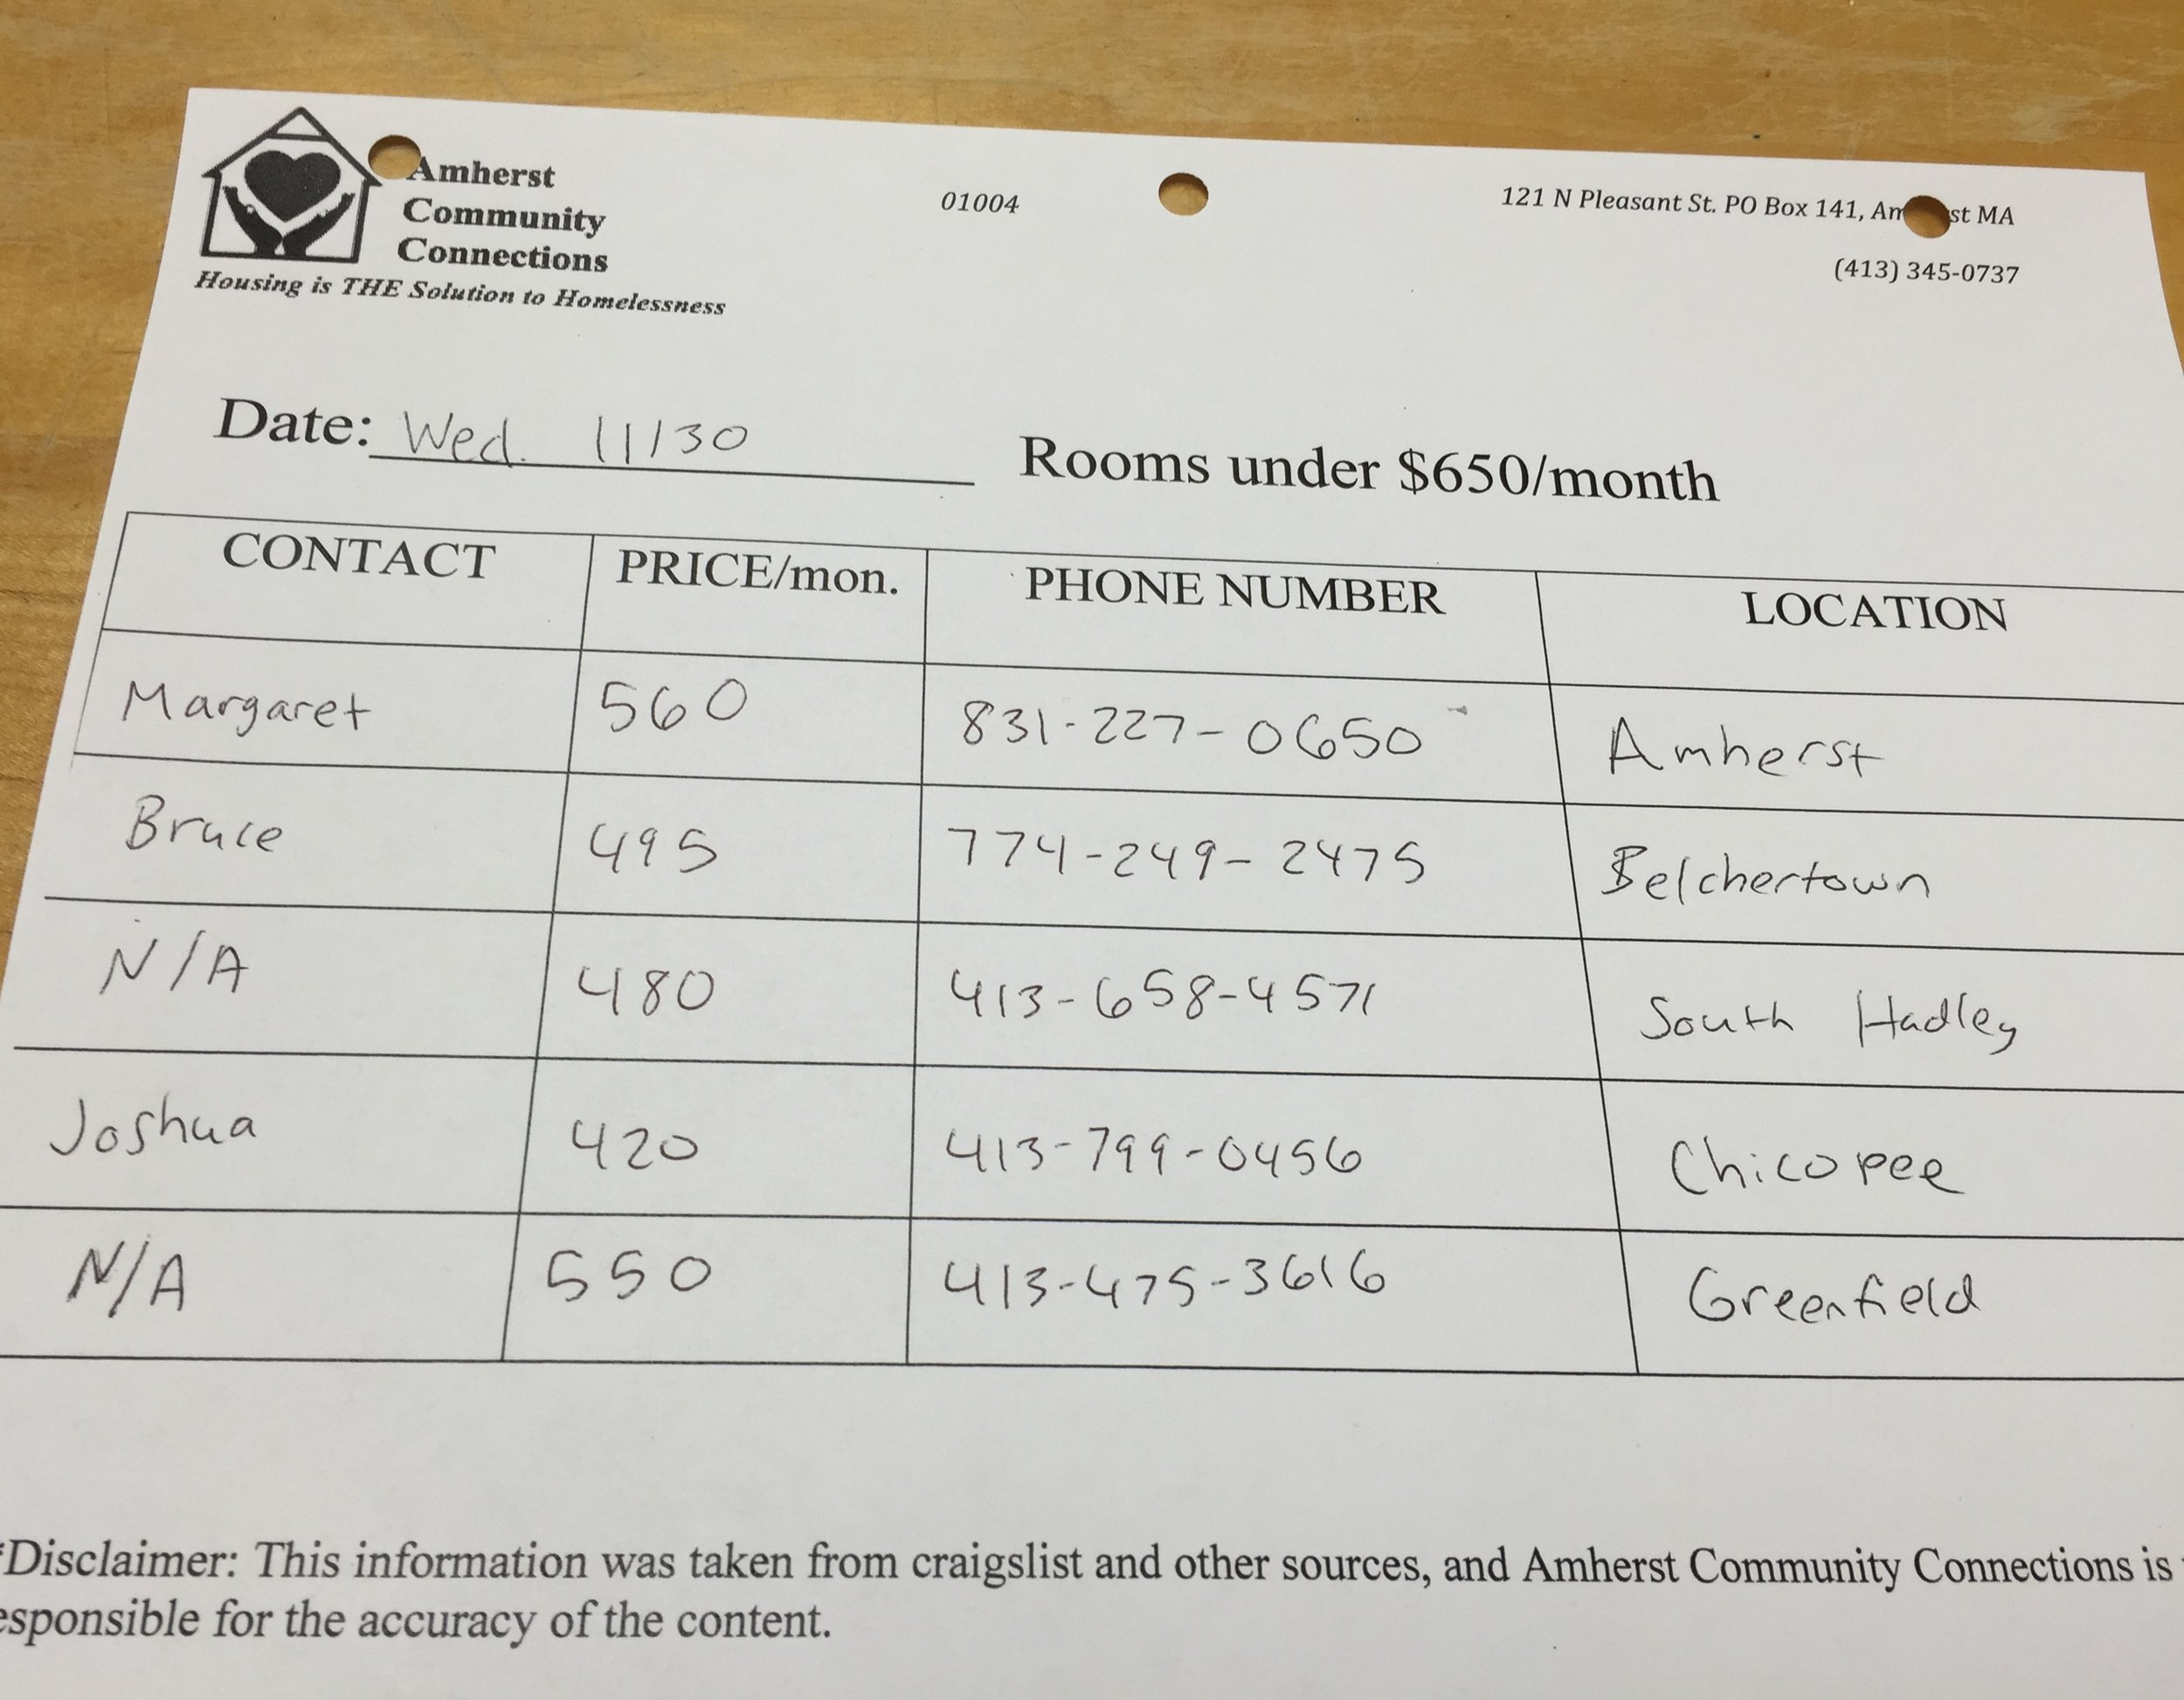 Amherst
Community
Connections
Housing is THE Solution to Homelessness
01004
121 N Pleasant St. PO Box 141, Am st MA
(413) 345-0737
Date: Wed. 11/30 Rooms under $650/month
CONTACT PRICE/mon. PHONE NUMBER LOCATION
Margaret 560 831-227-0650 Amherst
Bruce 495 774-249-2475 Belchertown
N/A 480 413-658-4571 South Hadley
Joshua 420 413-799-0456 Chicopee
N/A 550 413-475-3616 Greenfield
*Disclaimer: This information was taken from craigslist and other sources, and Amherst Community Connections is
esponsible for the accuracy of the content.